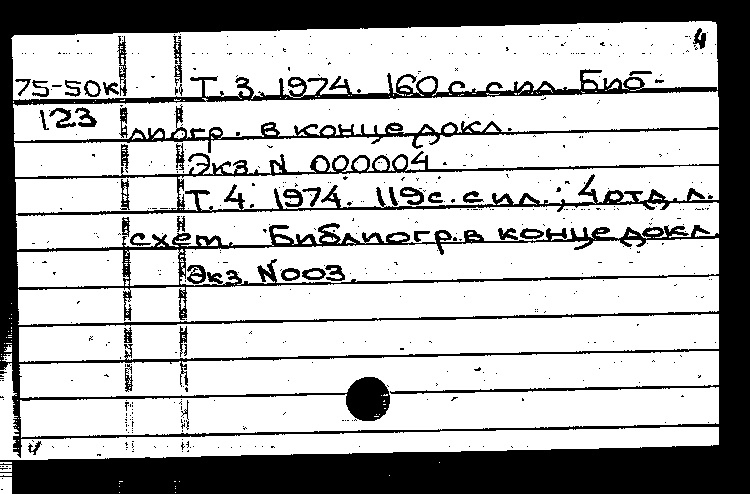 4
75-50к Т. 3. 1974. 160 с. с ил. Биб-
123 лиогр. в конце докл.
Экз. N 000004.
Т. 4. 1974. 119 с. с ил.; 4 отд. л.
схем. Библиогр. в конце докл.
Экз. N 003.
4